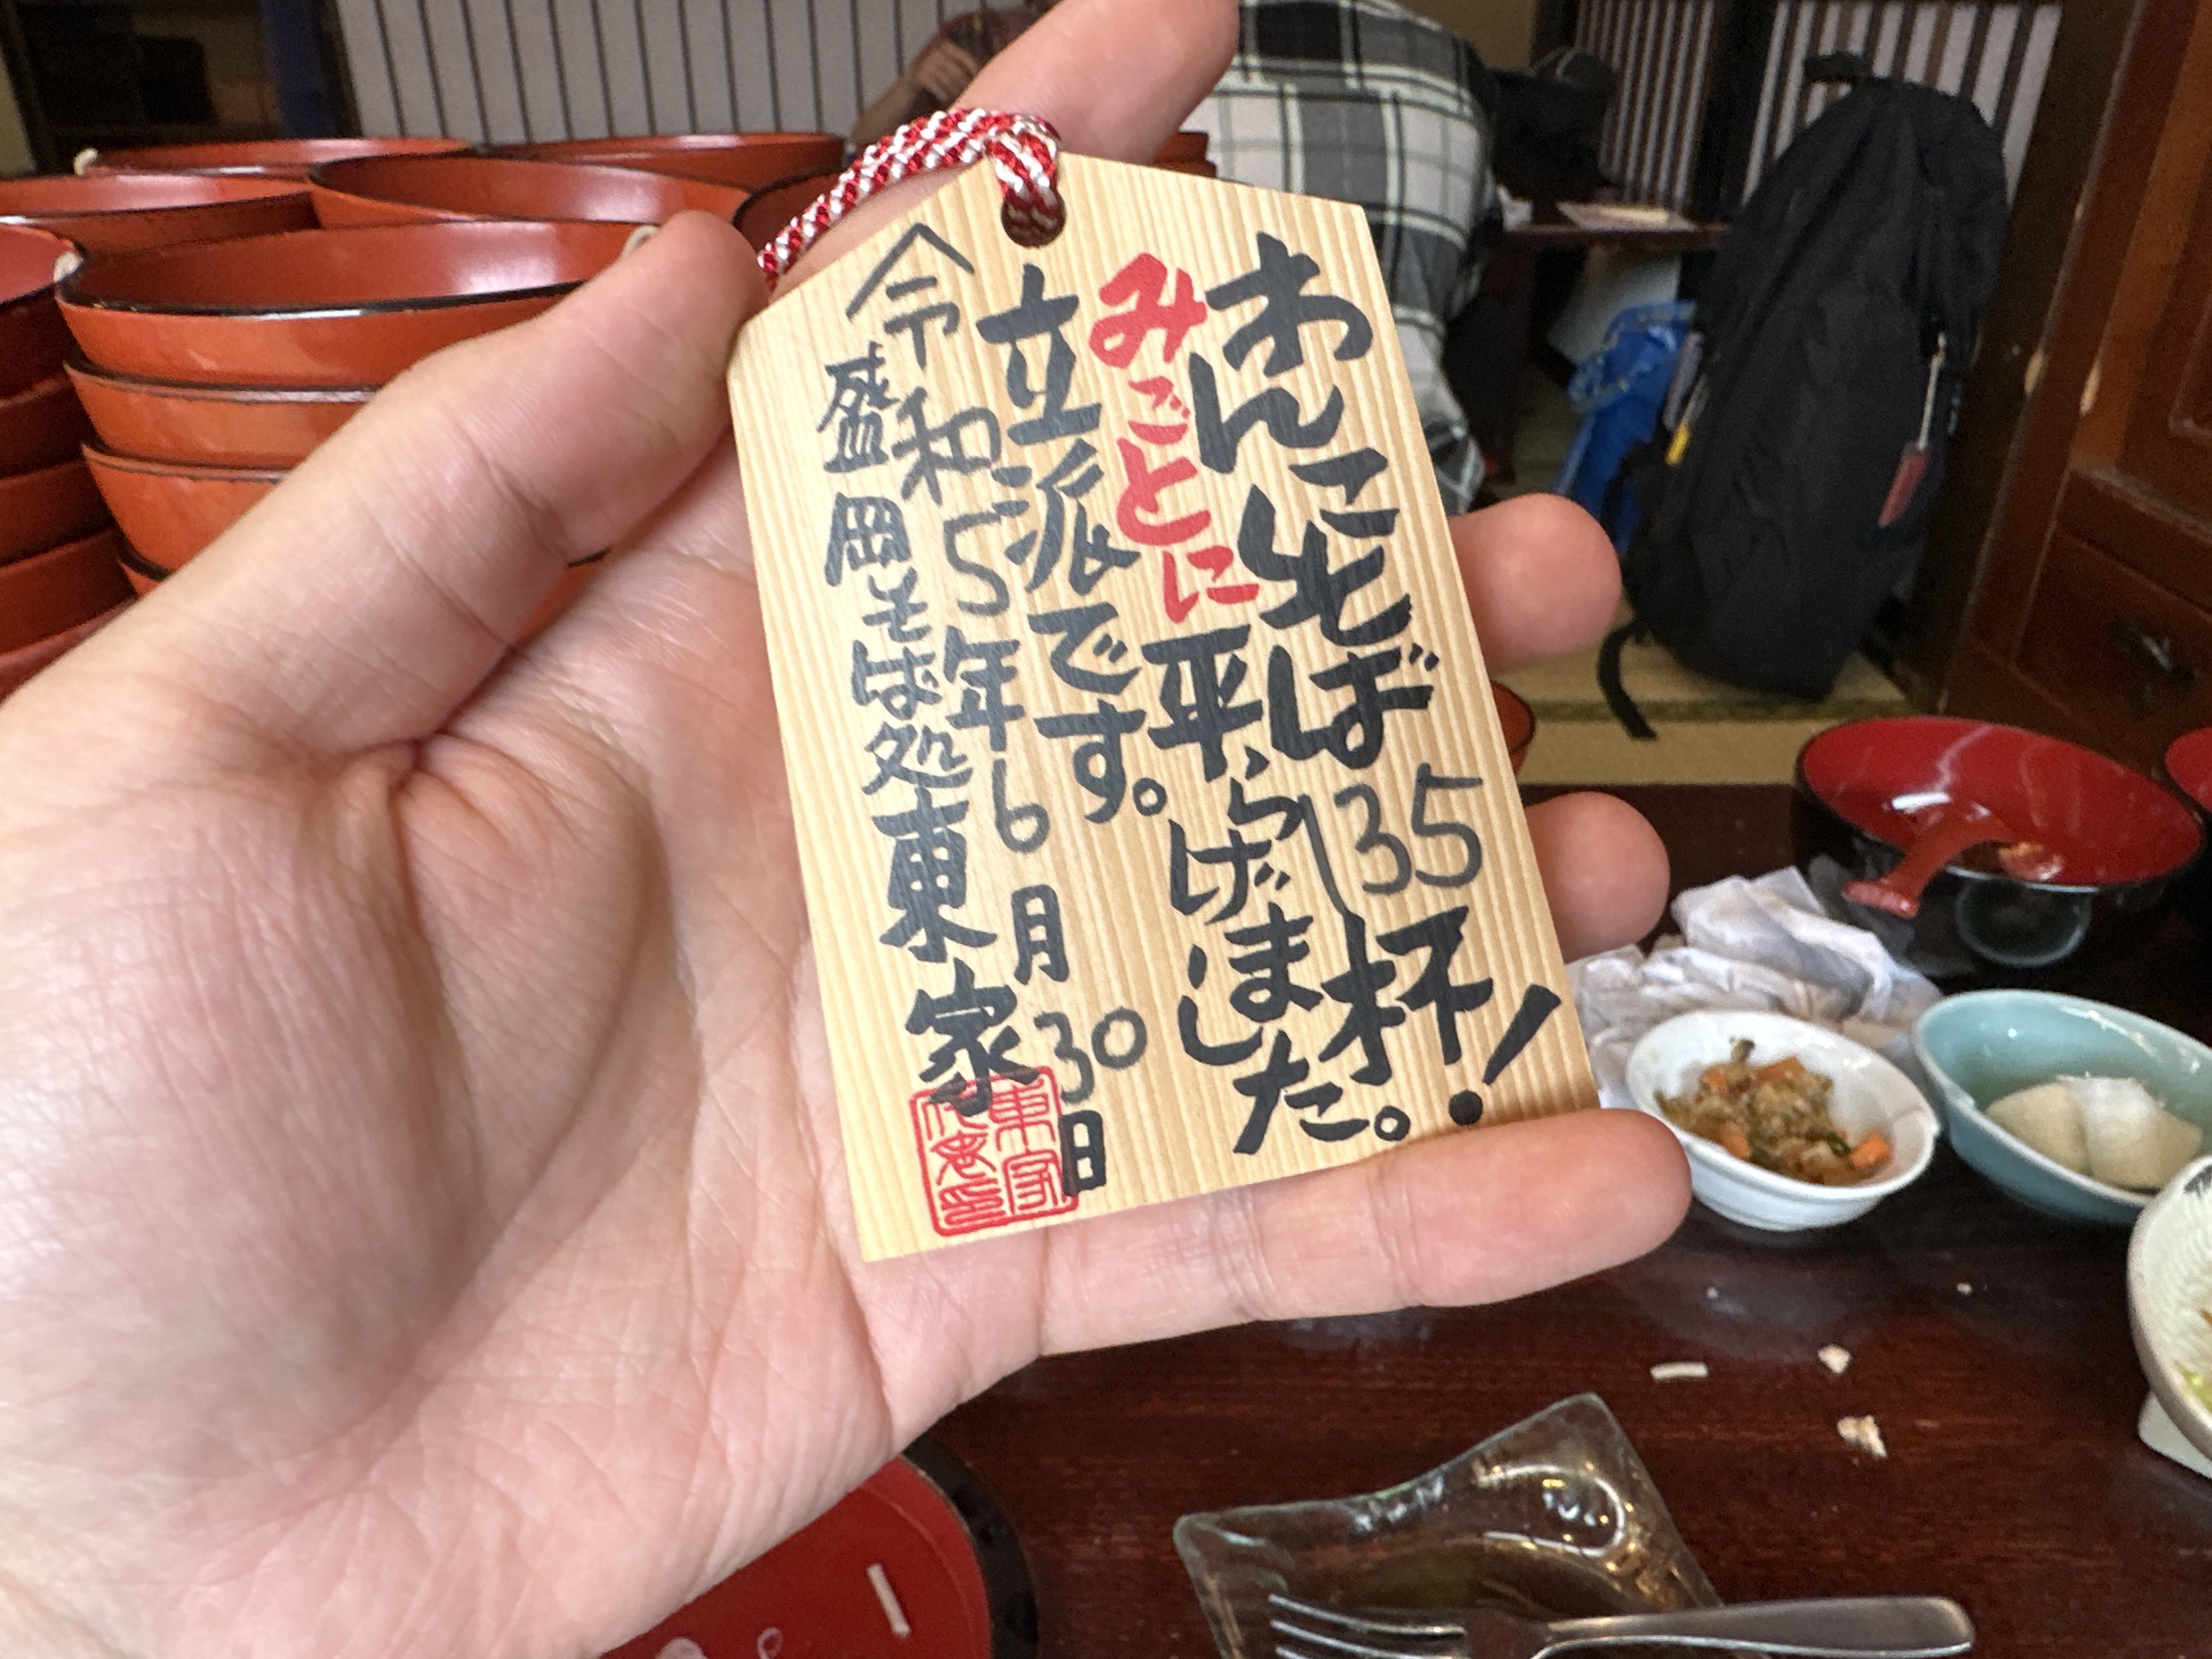 わんこそば135杯！
みごとに平らげました。
立派です。
令和5年6月30日
盛岡そば処東家
東家